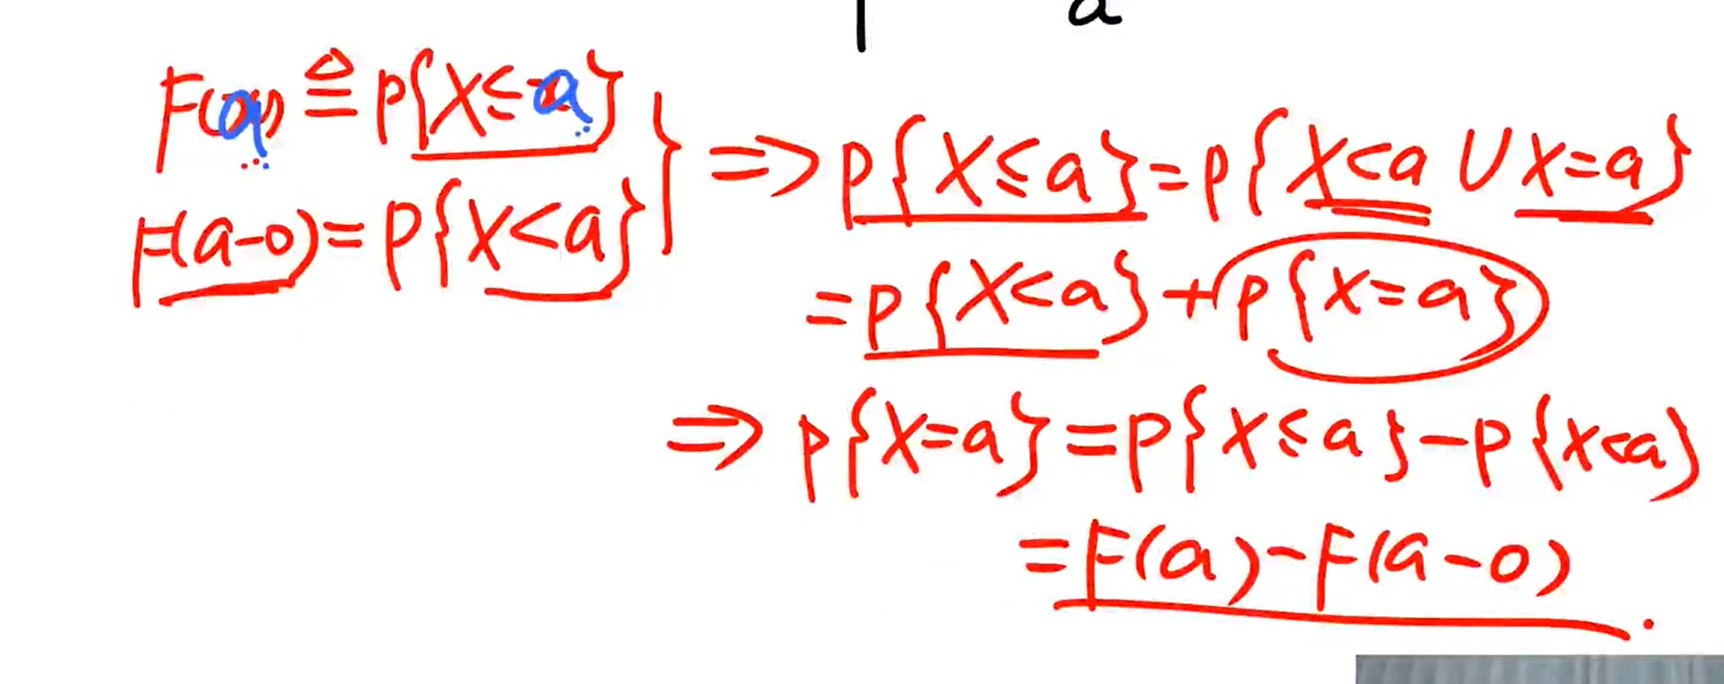 a
F(a) ≜ P{X≤a}
F(a-0)=P{X<a}
} ⇒ P{X≤a}=P{X<a ∪ X=a}
=P{X<a}+P{X=a}
⇒ P{X=a}=P{X≤a}-P{X<a}
=F(a)-F(a-0).